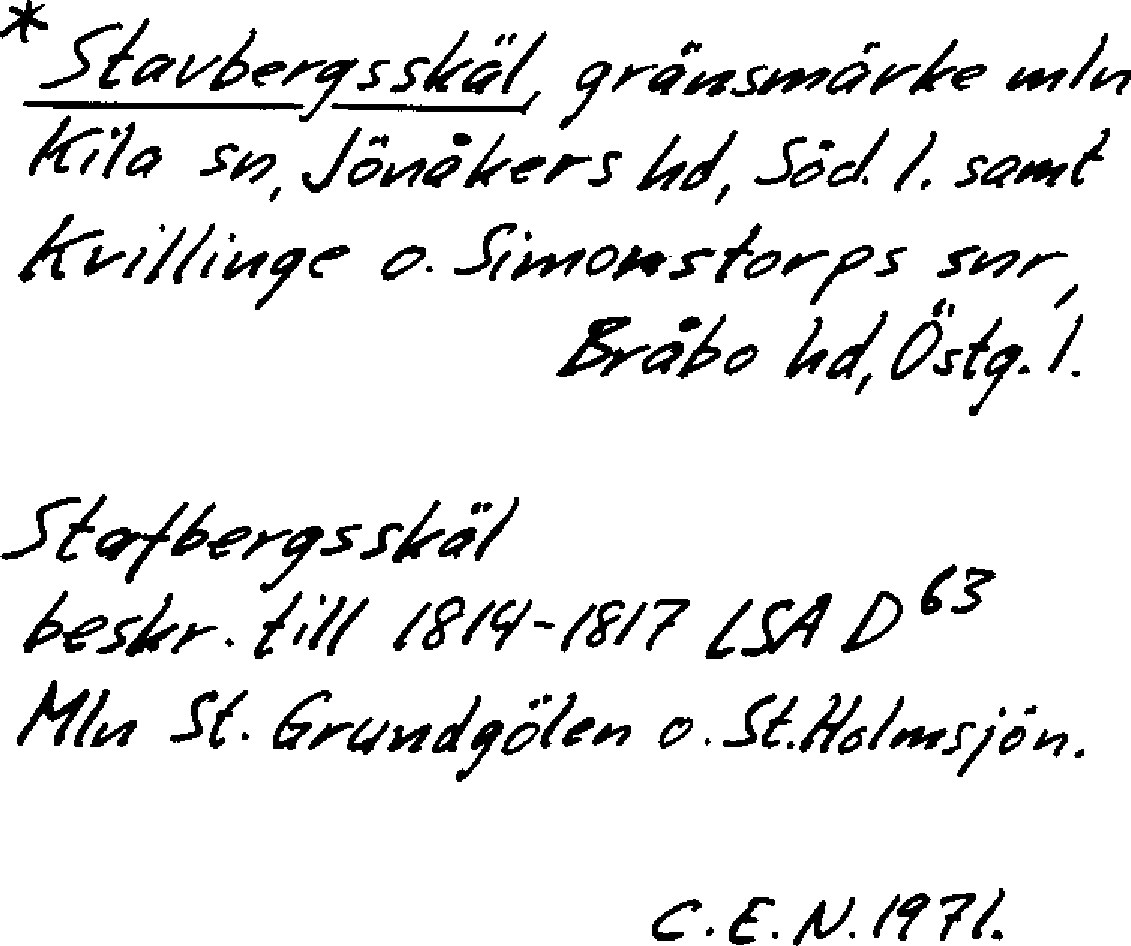 * Stavbergsskäl, gränsmärke mln
Kila sn, Jönåkers hd, Söd. l. samt
Kvillinge o. Simonstorps snr,
Bråbo hd, Östg. l.
Stafbergsskäl
beskr. till 1814-1817 LSA D63
Mln St. Grundgölen o. St. Holmsjön.
C.E.N. 1971.